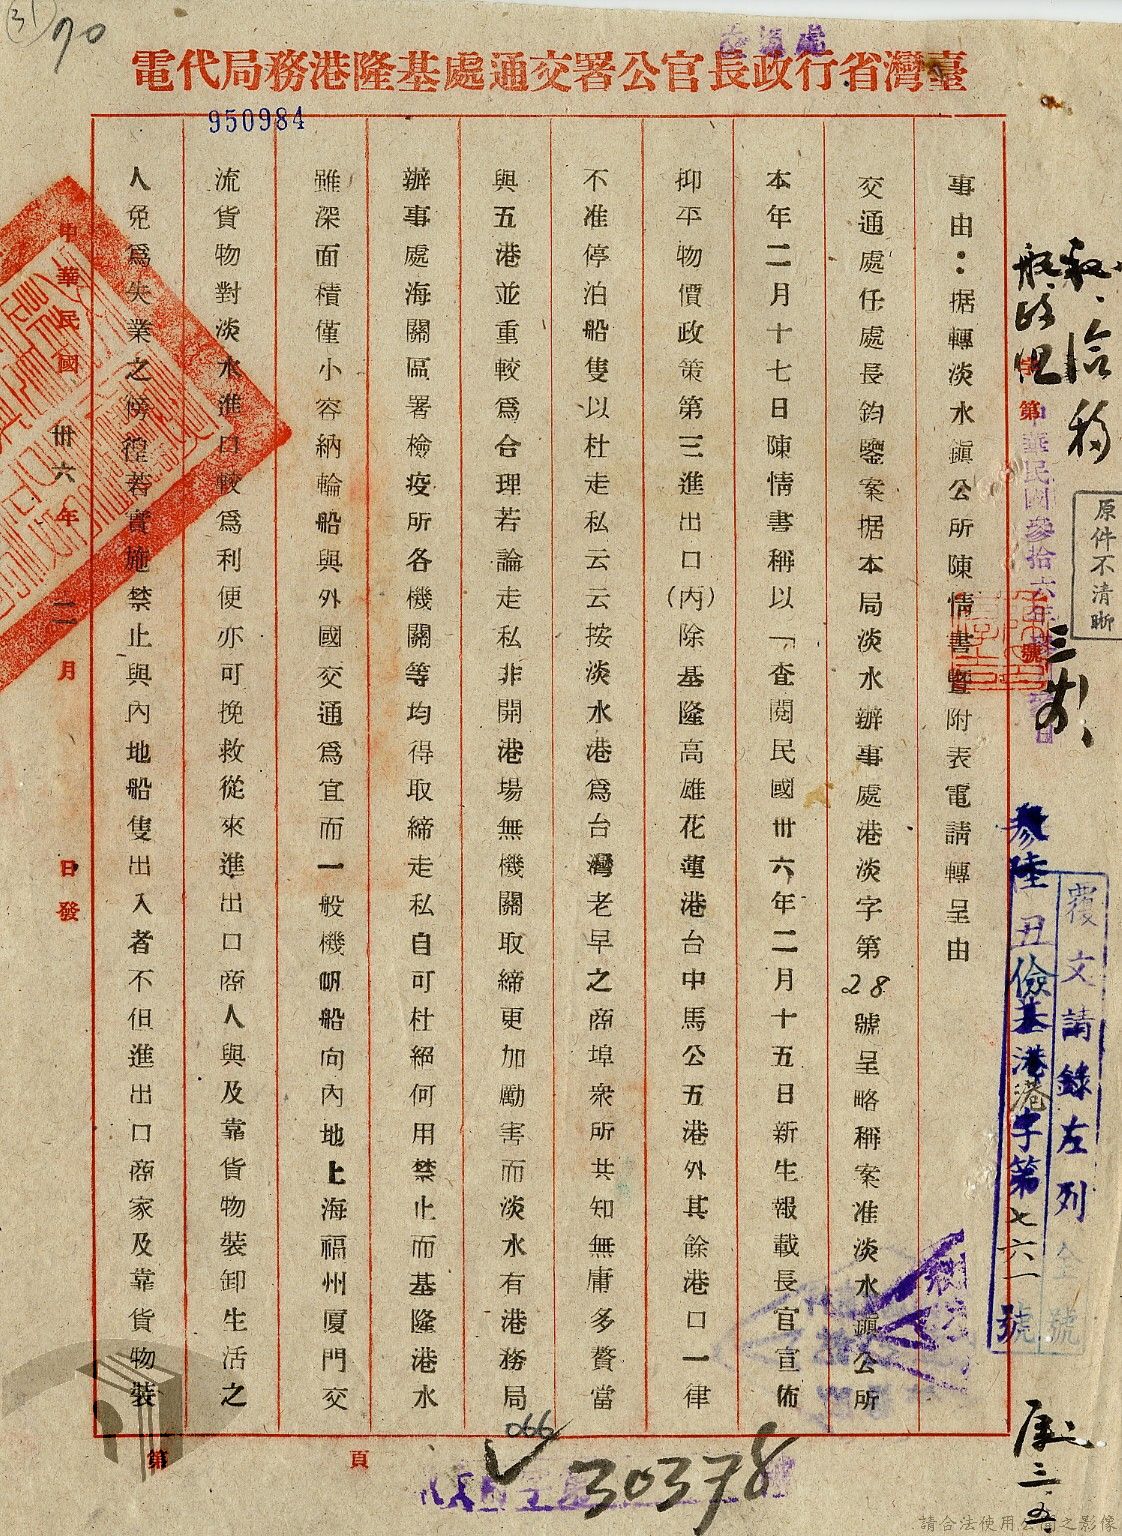 70
臺灣省行政長官公署交通處基隆港務局代電
950984
原件不清晰
第
號
中華民國參拾六年
覆文請錄左列全號
參陸丑儉基港港字第七六一號
事由：据轉淡水鎭公所陳情書暨附表電請轉呈由
交通處任處長鈞鑒案据本局淡水辦事處港淡字第28號呈略稱案准淡水鎭公所
本年二月十七日陳情書稱以「査閱民國卅六年二月十五日新生報載長官宣佈
抑平物價政策第三進出口(丙)除基隆高雄花蓮港台中馬公五港外其餘港口一律
不准停泊船隻以杜走私云云按淡水港爲台灣老早之商埠衆所共知無庸多贅當
與五港並重較爲合理若論走私非開港場無機關取締更加勵害而淡水有港務局
辦事處海關區署檢疫所各機關等均得取締走私自可杜絕何用禁止而基隆港水
雖深面積僅小容納輪船與外國交通爲宜而一般機帆船向內地上海福州厦門交
流貨物對淡水進口較爲利便亦可挽救從來進出口商人與及靠貨物裝卸生活之
人免爲失業之傍徨若實施禁止與內地船隻出入者不但進出口商家及靠貨物裝
中華民國卅六年二月 日發
第 頁
066
30378
請合法使用公開之影像